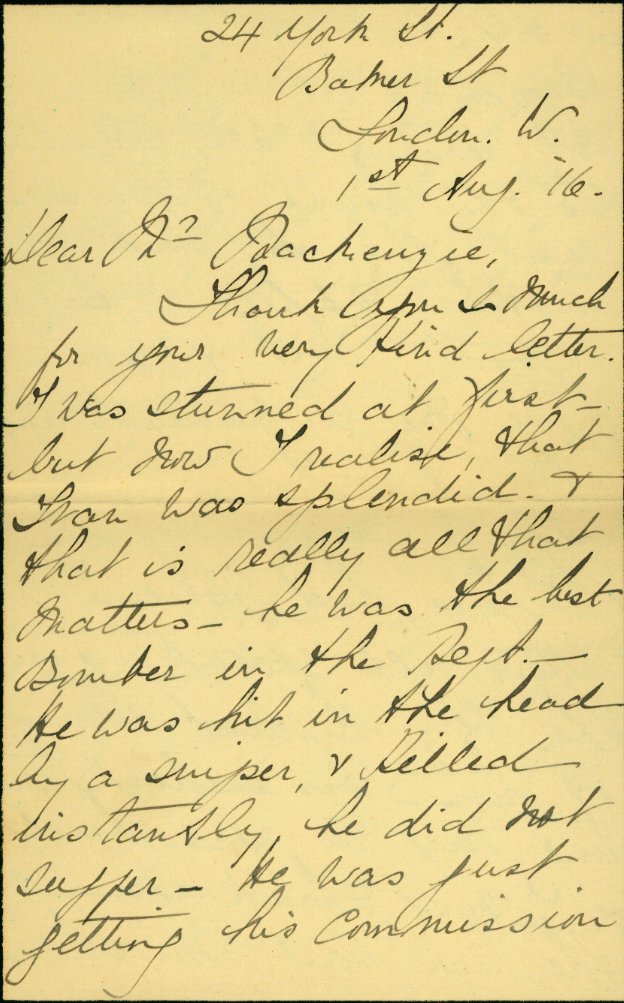 24 York St.
Baker St
London. W.
1st Aug. 16.
Dear Mr Mackenzie,
Thank you so much
for your very kind letter.
I was stunned at first –
but now I realise, that
Ivan was splendid. &
that is really all that
matters – he was the best
Bomber in the Regt. –
He was hit in the head
by a sniper, & killed
instantly, he did not
suffer – He was just
getting his commission